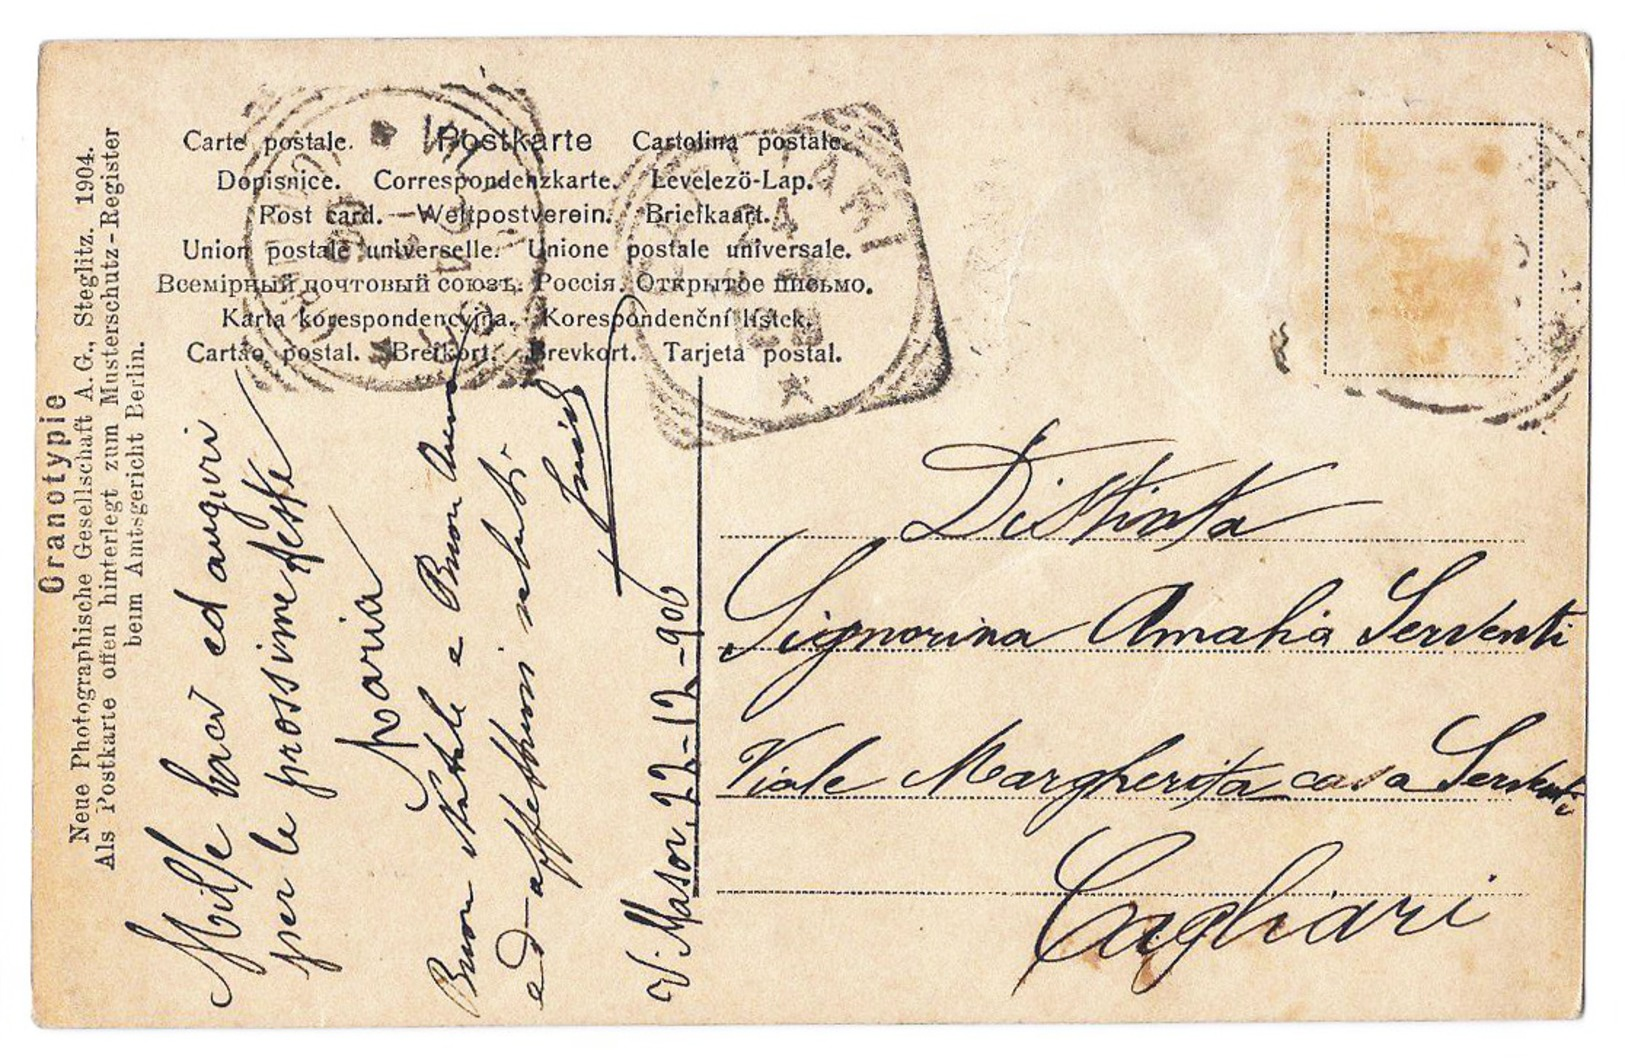 Carte postale. Postkarte Cartolina postale.
Dopisnice. Correspondenzkarte. Levelező-Lap.
Post card. — Weltpostverein. Briefkaart.
Union postale universelle. Unione postale universale.
Всемірный почтовый союзъ. Россія. Открытое письмо.
Karta korespondencyjna. Korespondenční lístek.
Cartão postal. Brefkort. Brevkort. Tarjeta postal.
Oranotypie
Neue Photographische Gesellschaft A. G., Steglitz. 1904.
Als Postkarte offen hinterlegt zum Musterschutz-Register
beim Amtsgericht Berlin.
24
Mille baci ed auguri
per le prossime feste
Maria
Buon Natale e Buon Anno
ed affettuosi saluti
V. Masor. 22-12-906
Distinta
Signorina Amalia Serventi
Viale Margherita casa Serventi
Cagliari